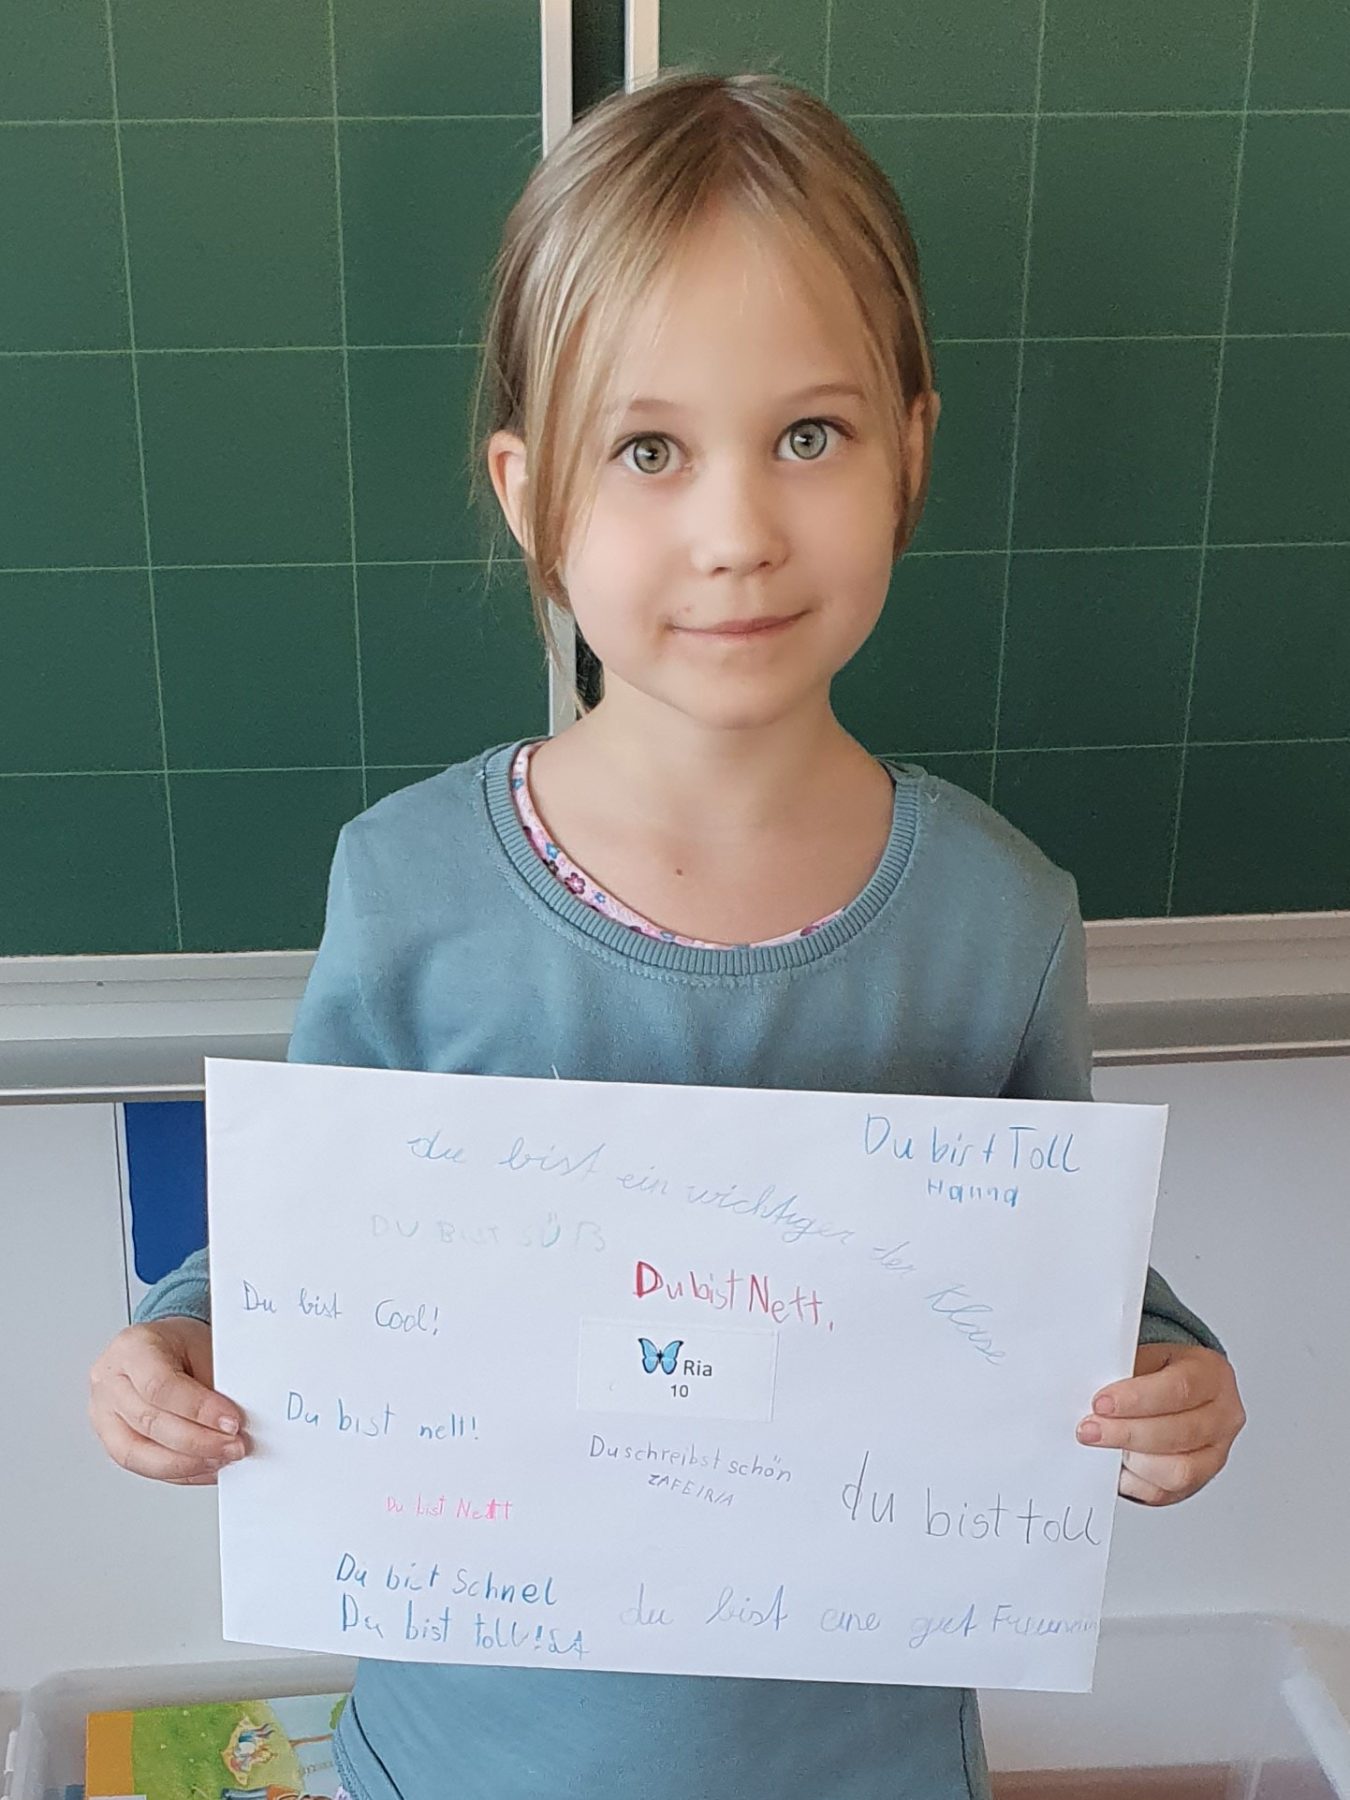 Du bist Toll
Hanna
du bist ein wichtiger der Klase
DU BIST SÜß
Du bist Nett.
Du bist Cool!
Ria
10
Du bist nett!
Du schreibst schön
ZAFEIRIA
du bist toll
Du bist Nett
Du bist Schnel
Du bist toll!
du bist eine gut